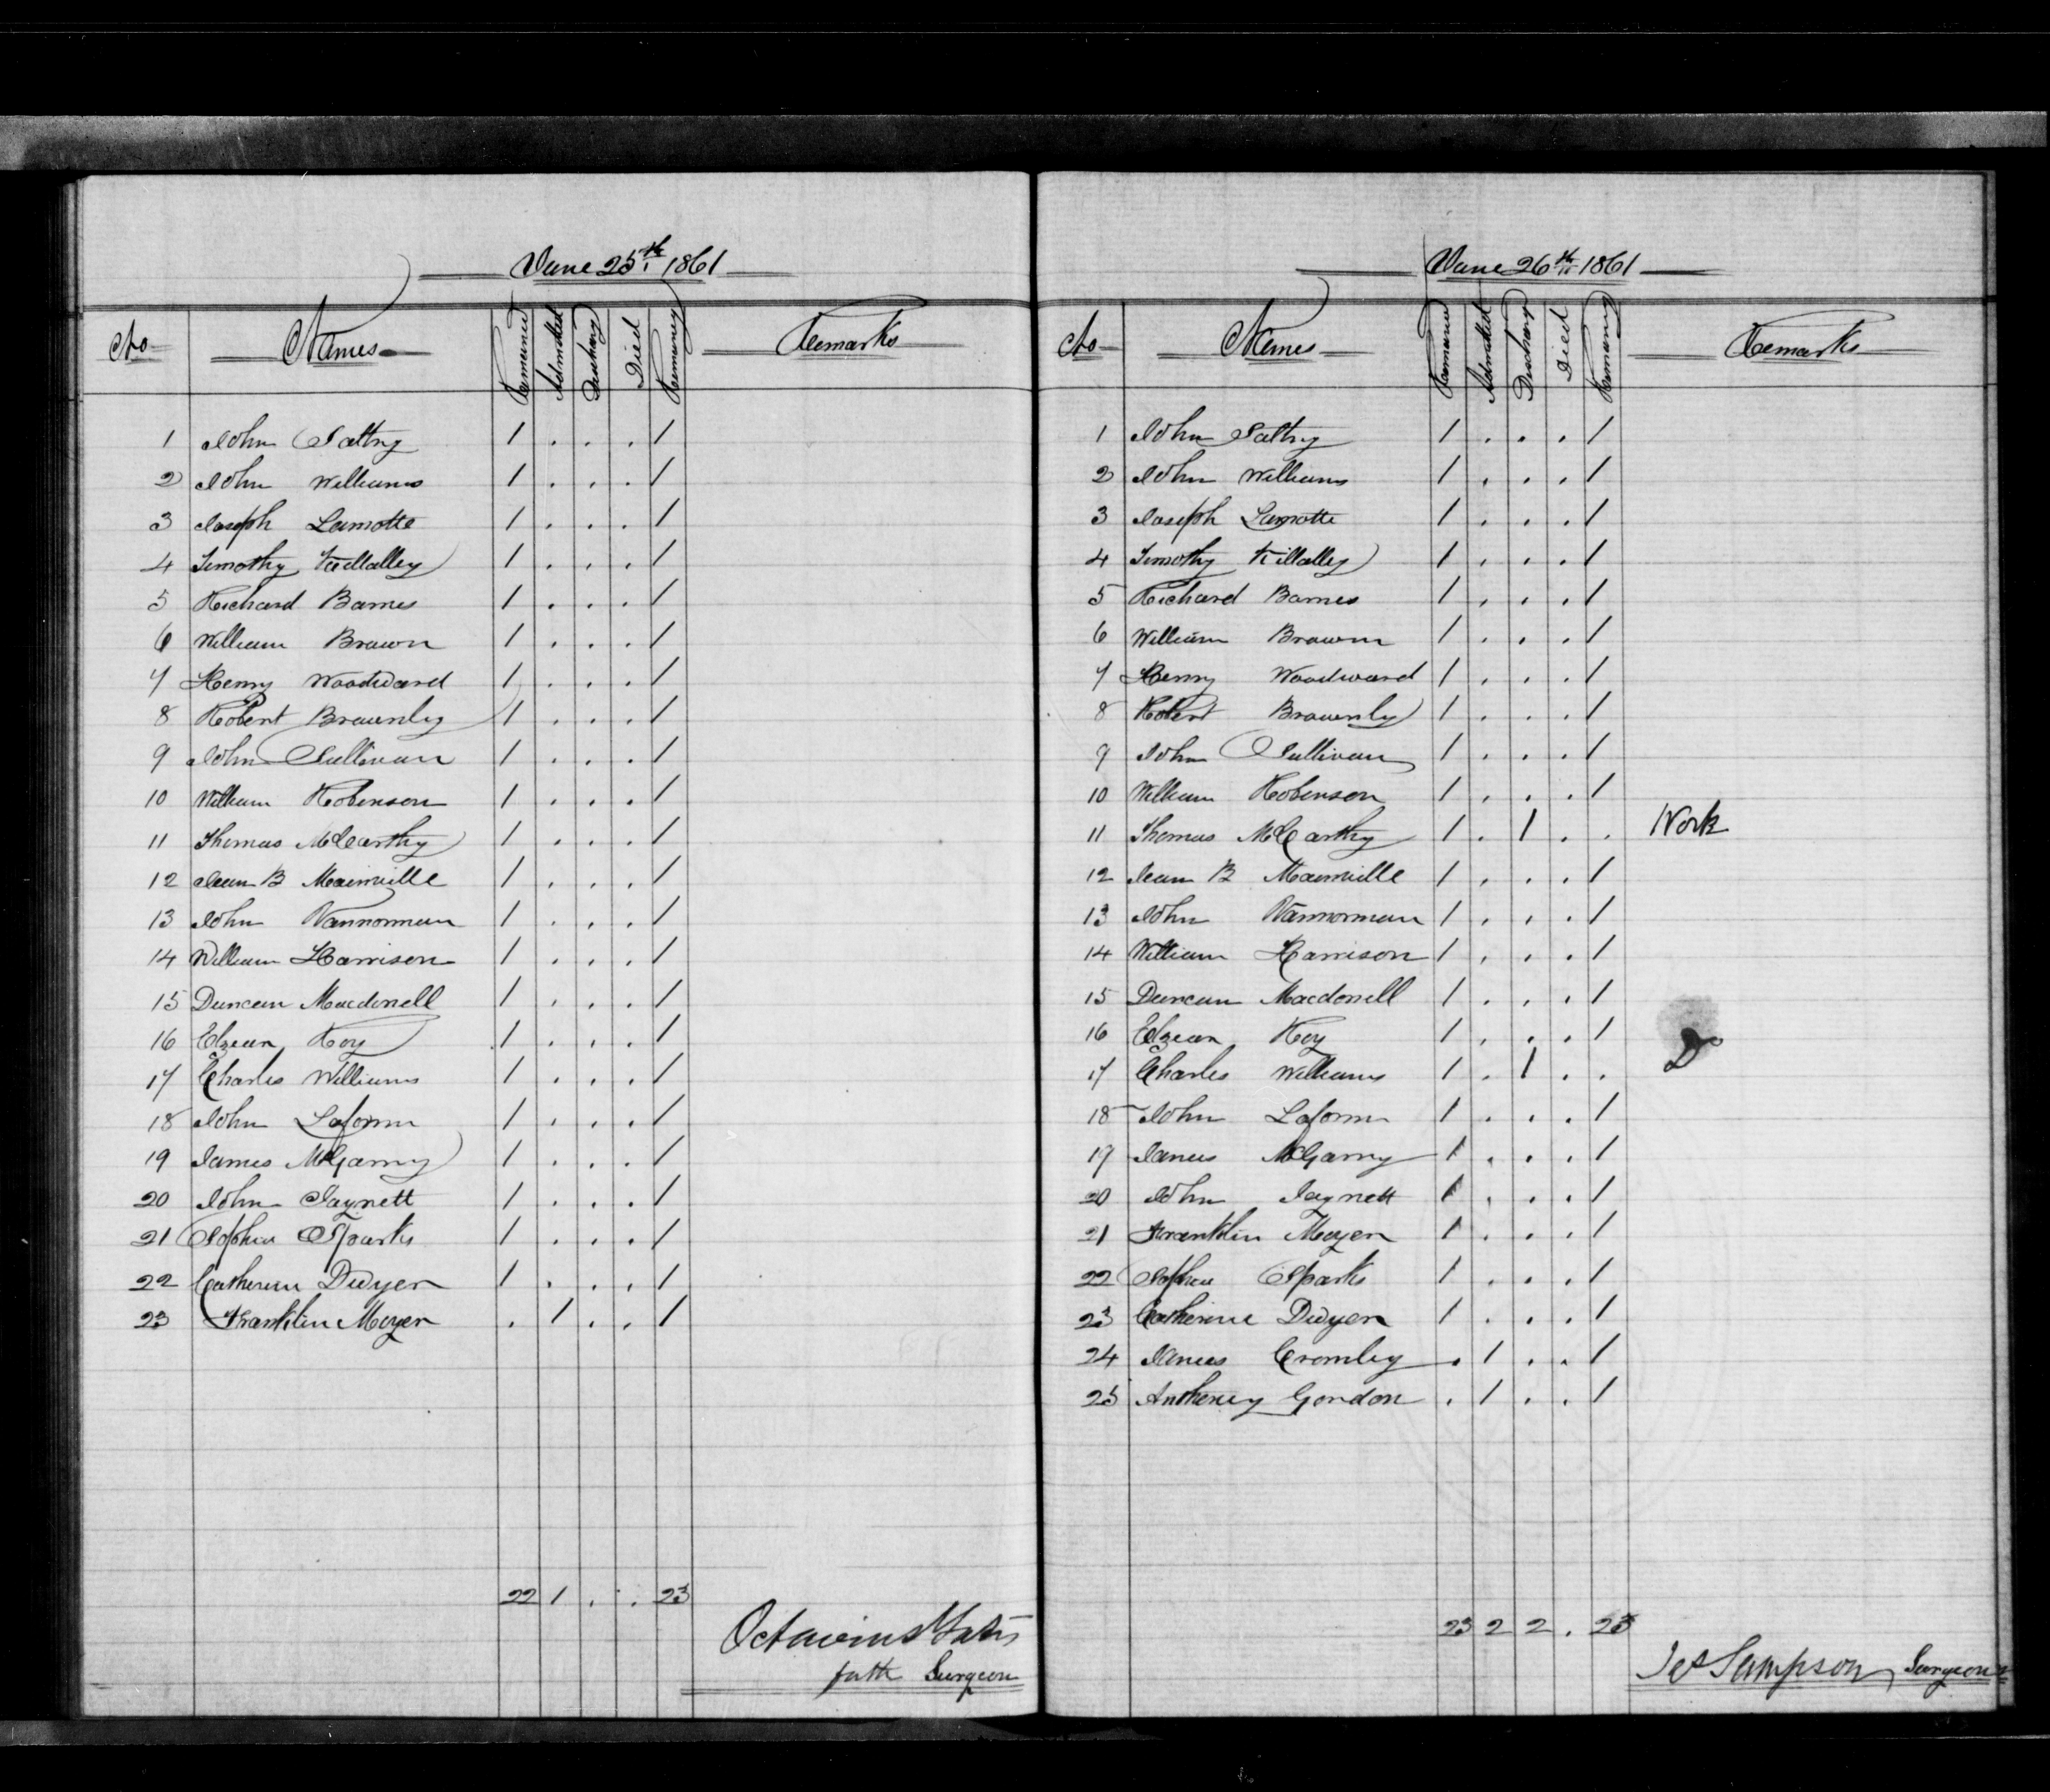 June 25th 1861
No Names Remained Admitted Discharg Died Remaining Remarks
1 John Saltry 1 . . . 1
2 John Williams 1 . . . 1
3 Joseph Lamotte 1 . . . 1
4 Timothy Killalley 1 . . . 1
5 Richard Barnes 1 . . . 1
6 William Brown 1 . . . 1
7 Henry Woodward 1 . . . 1
8 Robert Brownly 1 . . . 1
9 John Sullivan 1 . . . 1
10 William Robinson 1 . . . 1
11 Thomas McCarthy 1 . . . 1
12 Jean B Mainville 1 . . . 1
13 John Vannorman 1 . . . 1
14 William Harrison 1 . . . 1
15 Duncan Macdonell 1 . . . 1
16 Elzear Roy 1 . . . 1
17 Charles Williams 1 . . . 1
18 John Laform 1 . . . 1
19 James McGarry 1 . . . 1
20 John Jaynett 1 . . . 1
21 Sophia Sparks 1 . . . 1
22 Catherine Dwyer 1 . . . 1
23 Franklin Moyer . 1 . . 1
22 1 . . 23
Octavius Yates
for the Surgeon
June 26th 1861
No Names Remained Admitted Discharge Died Remaining Remarks
1 John Saltry 1 . . . 1
2 John Williams 1 . . . 1
3 Joseph Lamotte 1 . . . 1
4 Timothy Killalley 1 . . . 1
5 Richard Barnes 1 . . . 1
6 William Brown 1 . . . 1
7 Henry Woodward 1 . . . 1
8 Robert Brownly 1 . . . 1
9 John Sullivan 1 . . . 1
10 William Robinson 1 . . . 1
11 Thomas McCarthy 1 . 1 . . Work
12 Jean B Mainville 1 . . . 1
13 John Vannorman 1 . . . 1
14 William Harrison 1 . . . 1
15 Duncan Macdonell 1 . . . 1
16 Elzear Roy 1 . . . 1
17 Charles Williams 1 . 1 . . Do
18 John Laform 1 . . . 1
19 James McGarry 1 . . . 1
20 John Jaynett 1 . . . 1
21 Franklin Moyer 1 . . . 1
22 Sophia Sparks 1 . . . 1
23 Catherine Dwyer 1 . . . 1
24 James Cromley . 1 . . 1
25 Antheney Gordon . 1 . . 1
23 2 2 . 23
Jas Sampson, Surgeon